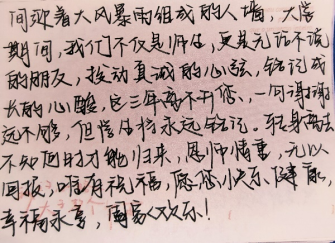 间歇着大风暴雨组成的人墙，大学
期间，我们不仅是师生，更是无话不谈
的朋友，拨动真诚的心弦，铭记成
长的心酸，这三年离不开您、一句谢谢
远不够，但学生将永远铭记。转身离去
不知何时才能归来，恩师情重，无以
回报，唯有祝福，愿您小天乐健康，
幸福永享，阖家欢乐！